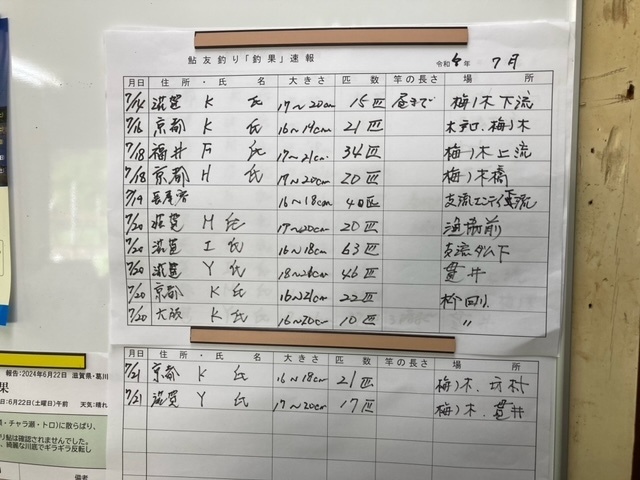 鮎友釣り「釣果」速報
令和6年 7月
月日 住所・氏名 大きさ 匹数 竿の長さ 場所
7/14 滋賀 K 氏 17〜20cm 15匹 昼まで 梅ノ木下流
7/16 京都 K 氏 16〜19cm 21匹 梅ノ木
7/18 福井 F 氏 17〜21cm 34匹 梅ノ木上流
7/18 京都 H 氏 17〜20cm 20匹 梅ノ木橋
7/19 16〜18cm 40匹 支流
7/20 滋賀 H 氏 17〜20cm 20匹 漁協前
7/20 滋賀 I 氏 16〜18cm 63匹 支流ダム下
7/20 滋賀 Y 氏 18〜20cm 46匹 貫井
7/20 京都 K 氏 16〜21cm 22匹
7/20 大阪 K 氏 16〜20cm 10匹 〃
月日 住所・氏名 大きさ 匹数 竿の長さ 場所
7/21 京都 K 氏 16〜18cm 21匹 梅ノ木、坊村
7/21 滋賀 Y 氏 17〜20cm 17匹 梅ノ木、貫井
報告:2024年6月22日 滋賀県・葛川
果
日:6月22日(土曜日)午前 天気:晴れ
チャラ瀬・トロ)に散らばり、
り鮎は確認されませんでした。
、綺麗な川底でギラギラ反転し
備考